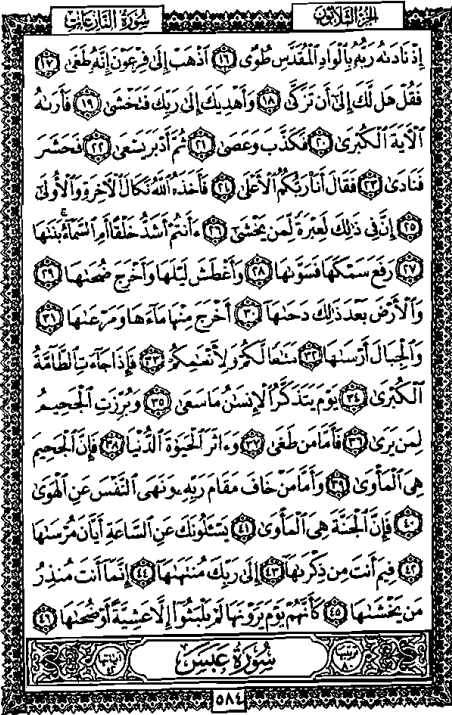 الجزء الثلاثون سورة النازعات
إِذْ نَادَىٰهُ رَبُّهُۥ بِٱلْوَادِ ٱلْمُقَدَّسِ طُوًى ١٦ ٱذْهَبْ إِلَىٰ فِرْعَوْنَ إِنَّهُۥ طَغَىٰ ١٧
فَقُلْ هَل لَّكَ إِلَىٰٓ أَن تَزَكَّىٰ ١٨ وَأَهْدِيَكَ إِلَىٰ رَبِّكَ فَتَخْشَىٰ ١٩ فَأَرَىٰهُ
ٱلْءَايَةَ ٱلْكُبْرَىٰ ٢٠ فَكَذَّبَ وَعَصَىٰ ٢١ ثُمَّ أَدْبَرَ يَسْعَىٰ ٢٢ فَحَشَرَ
فَنَادَىٰ ٢٣ فَقَالَ أَنَا۠ رَبُّكُمُ ٱلْأَعْلَىٰ ٢٤ فَأَخَذَهُ ٱللَّهُ نَكَالَ ٱلْءَاخِرَةِ وَٱلْأُولَىٰٓ
٢٥ إِنَّ فِى ذَٰلِكَ لَعِبْرَةً لِّمَن يَخْشَىٰٓ ٢٦ ءَأَنتُمْ أَشَدُّ خَلْقًا أَمِ ٱلسَّمَآءُ ۚ بَنَىٰهَا
٢٧ رَفَعَ سَمْكَهَا فَسَوَّىٰهَا ٢٨ وَأَغْطَشَ لَيْلَهَا وَأَخْرَجَ ضُحَىٰهَا ٢٩
وَٱلْأَرْضَ بَعْدَ ذَٰلِكَ دَحَىٰهَآ ٣٠ أَخْرَجَ مِنْهَا مَآءَهَا وَمَرْعَىٰهَا ٣١
وَٱلْجِبَالَ أَرْسَىٰهَا ٣٢ مَتَٰعًا لَّكُمْ وَلِأَنْعَٰمِكُمْ ٣٣ فَإِذَا جَآءَتِ ٱلطَّآمَّةُ
ٱلْكُبْرَىٰ ٣٤ يَوْمَ يَتَذَكَّرُ ٱلْإِنسَٰنُ مَا سَعَىٰ ٣٥ وَبُرِّزَتِ ٱلْجَحِيمُ
لِمَن يَرَىٰ ٣٦ فَأَمَّا مَن طَغَىٰ ٣٧ وَءَاثَرَ ٱلْحَيَوٰةَ ٱلدُّنْيَا ٣٨ فَإِنَّ ٱلْجَحِيمَ
هِىَ ٱلْمَأْوَىٰ ٣٩ وَأَمَّا مَنْ خَافَ مَقَامَ رَبِّهِۦ وَنَهَى ٱلنَّفْسَ عَنِ ٱلْهَوَىٰ
٤٠ فَإِنَّ ٱلْجَنَّةَ هِىَ ٱلْمَأْوَىٰ ٤١ يَسْـَٔلُونَكَ عَنِ ٱلسَّاعَةِ أَيَّانَ مُرْسَىٰهَا
٤٢ فِيمَ أَنتَ مِن ذِكْرَىٰهَآ ٤٣ إِلَىٰ رَبِّكَ مُنتَهَىٰهَآ ٤٤ إِنَّمَآ أَنتَ مُنذِرُ
مَن يَخْشَىٰهَا ٤٥ كَأَنَّهُمْ يَوْمَ يَرَوْنَهَا لَمْ يَلْبَثُوٓا۟ إِلَّا عَشِيَّةً أَوْ ضُحَىٰهَا ٤٦
سُورَةُ عَبَسَ
٥٨٤